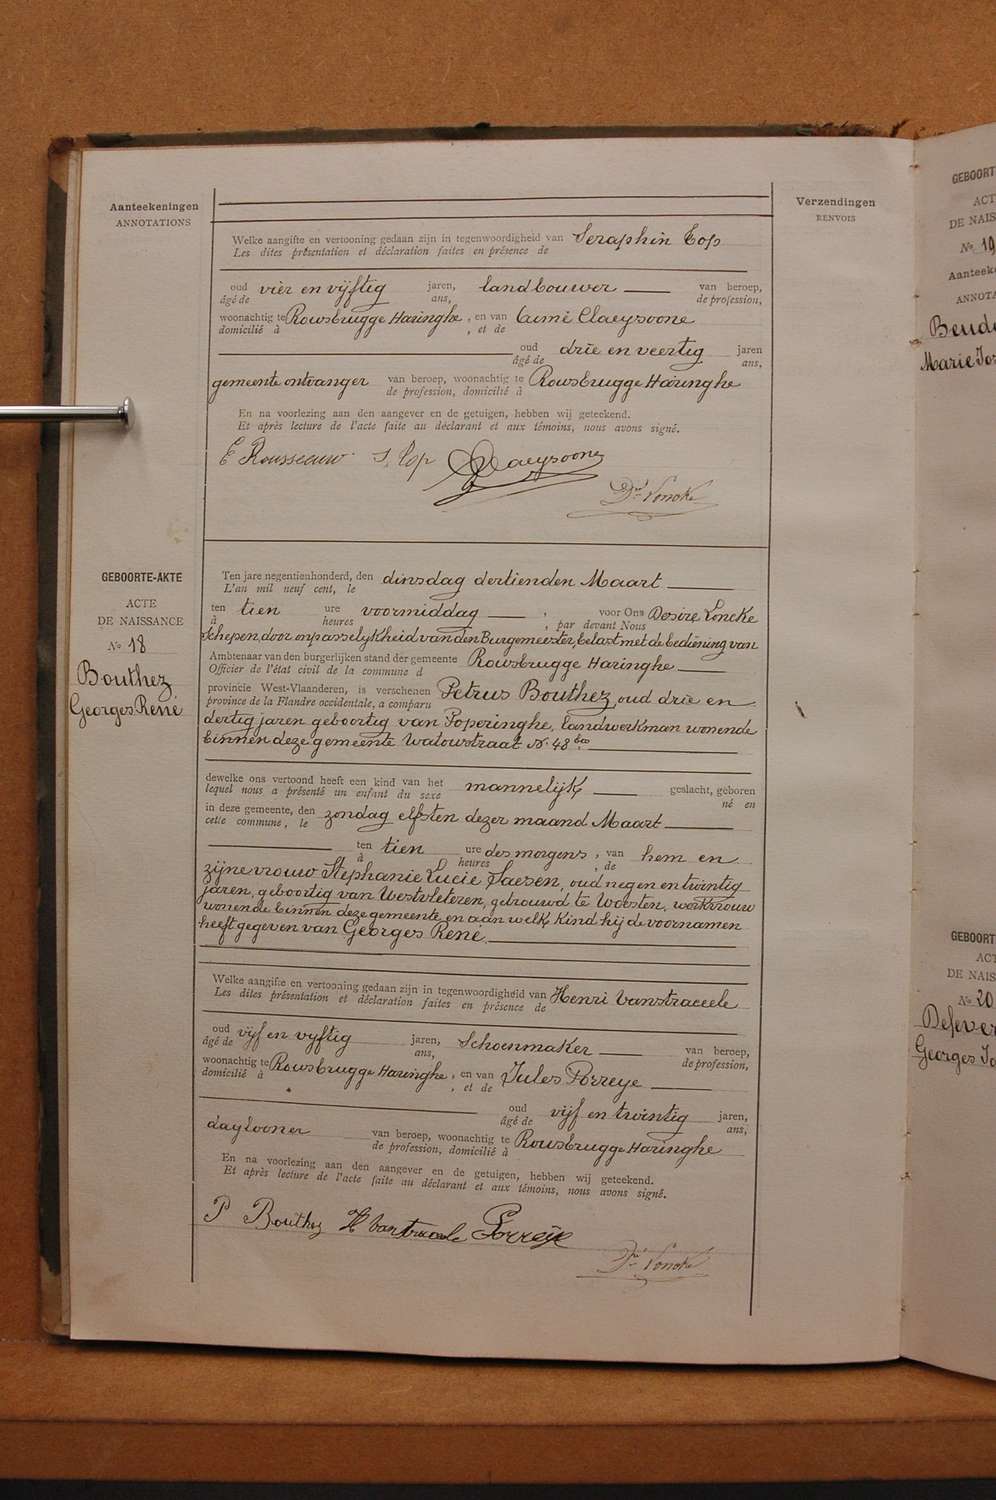 Aanteekeningen
ANNOTATIONS
Verzendingen
RENVOIS
Welke aangifte en vertooning gedaan zijn in tegenwoordigheid van Seraphin Cop
Les dites présentation et déclaration faites en présence de
oud vier en vijftig jaren, landbouwer van beroep,
âgé de ans, de profession,
woonachtig te Rousbrugge Haringhe, en van Aimé Claeysoone
domicilié à , et de
oud drie en veertig jaren
âgé de ans,
gemeente ontvanger van beroep, woonachtig te Rousbrugge Haringhe
de profession, domicilié à
En na voorlezing aan den aangever en de getuigen, hebben wij geteekend.
Et après lecture de l'acte faite au déclarant et aux témoins, nous avons signé.
E Rousseeuw S. Cop Claeysoone
Dre Loncke
GEBOORTE-AKTE
ACTE
DE NAISSANCE
No 18
Bouthez
Georges René
Ten jare negentienhonderd, den dinsdag dertienden Maart
L'an mil neuf cent, le
ten tien ure voormiddag ; voor Ons Desire Loncke
à heures , par devant Nous
Schepen, door onpasselijkheid van den Burgemeester, belast met de bediening van
Ambtenaar van den burgerlijken stand der gemeente Rousbrugge Haringhe
Officier de l'état civil de la commune d
provincie West-Vlaanderen, is verschenen Petrus Bouthez, oud drie en
province de la Flandre occidentale, a comparu
dertig jaren geboortig van Poperinghe, landwerkman wonende
binnen deze gemeente Watoustraat No 48
dewelke ons vertoond heeft een kind van het mannelijk geslacht, geboren
lequel nous a présenté un enfant du sexe né en
in deze gemeente, den zondag elfsten dezer maand Maart
cette commune, le
ten tien ure des morgens, van hem en
à heures , de
zijne vrouw Stephanie Lucie Saesen, oud negen en twintig
jaren, geboortig van Westvleteren, getrouwd te Woesten, werkvrouw
wonende binnen deze gemeente, en aan welk kind hij de voornamen
heeft gegeven van Georges René
Welke aangifte en vertooning gedaan zijn in tegenwoordigheid van Henri Vanstraceele
Les dites présentation et déclaration faites en présence de
oud vijf en vyftig jaren, Schoenmaker van beroep,
âgé de ans, de profession,
woonachtig te Rousbrugge Haringhe, en van Jules Porreye
domicilié à , et de
oud vijf en twintig jaren,
âgé de ans,
daglooner van beroep, woonachtig te Rousbrugge Haringhe
de profession, domicilié à
En na voorlezing aan den aangever en de getuigen, hebben wij geteekend.
Et après lecture de l'acte faite au déclarant et aux témoins, nous avons signé.
P Bouthez H Vanstraceele Porreye
Dre Loncke
GEBOORT
ACT
DE NAIS
No 19
Aanteeke
ANNOTA
Marie Jo
GEBOORT
ACT
DE NAIS
No 20
Defever
Georges Jo